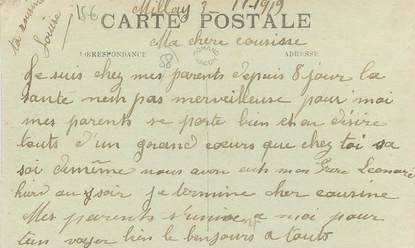 Millay 3 11-1919
15€
Louise
CARTE POSTALE
CORRESPONDANCE
ADRESSE
58
Ma chere cousisse
Je suis chez mes parents depuis 8 jour la
santé nesh pas merveilleuse pour moi
mes parents se porte bien et on désire
touts d'un grand cœurs que chez toi sa
soi de même nous avon euth mon frere Leonare
hierd au soir je termine cher cousine
Mes parents s'unise a moi pour
ten voyer bien le bonjours a touts